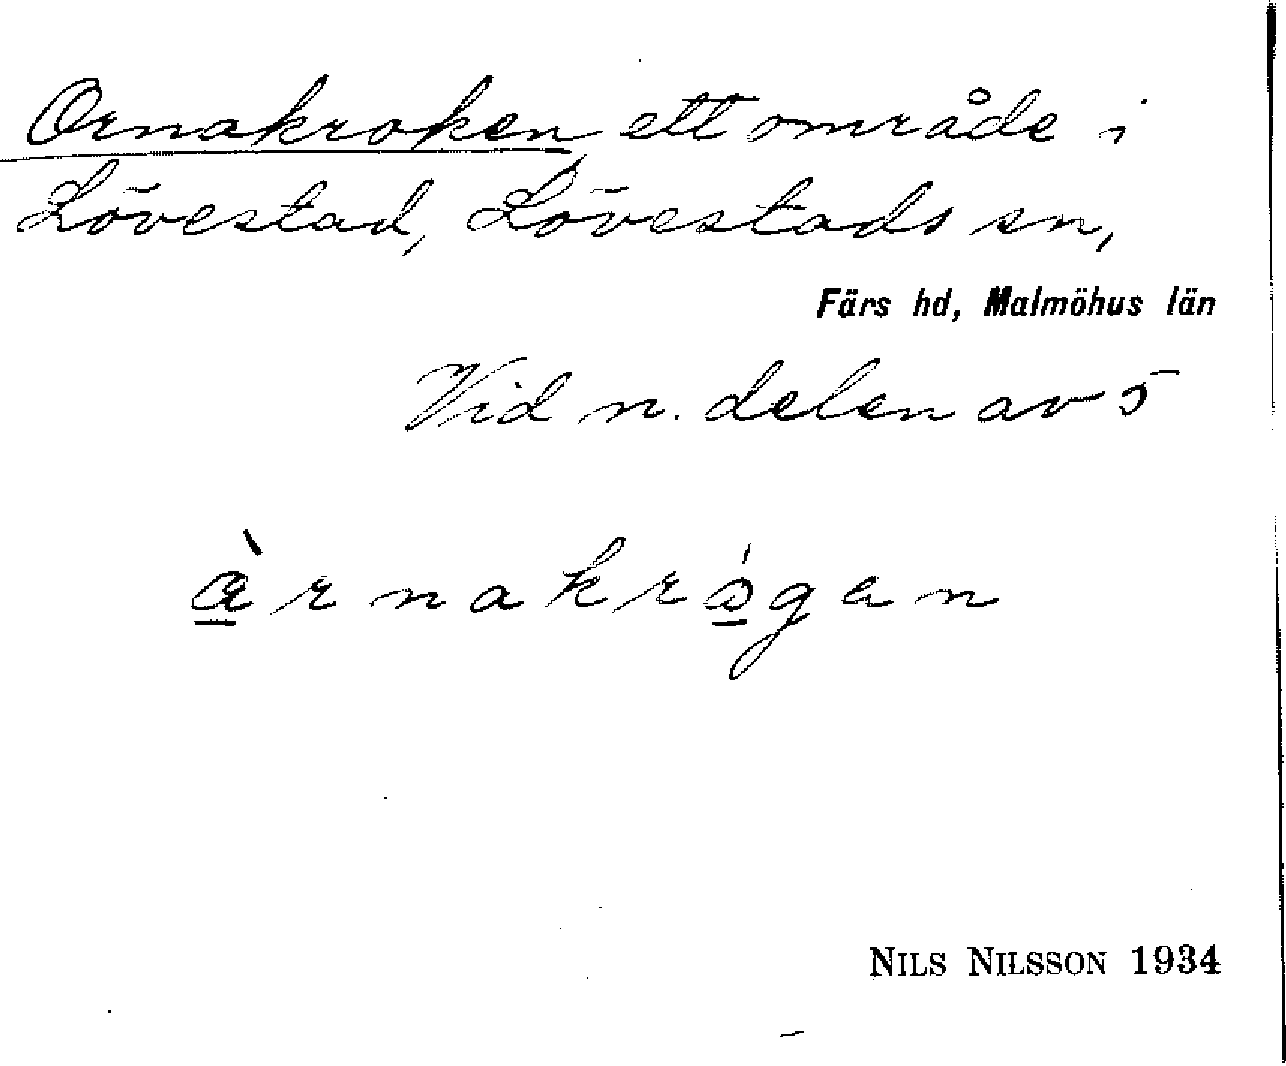 Ornakroken ett område i
Lövestad, Lövestads sn,
Färs hd, Malmöhus län
Vid n. delen av 5
àrnakrógen
NILS NILSSON 1934